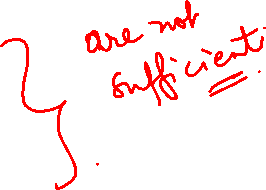 are not
sufficient.